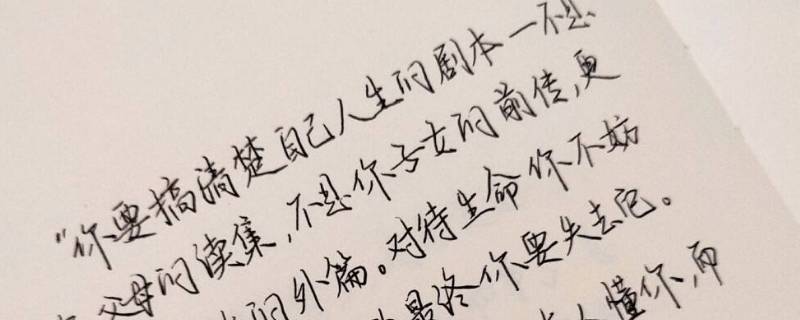 “你要搞清楚自己人生的剧本一不是
父母的续集,不是你子女的前传,更
的外篇。对待生命你不妨
最终你要失去它。
人懂你,而